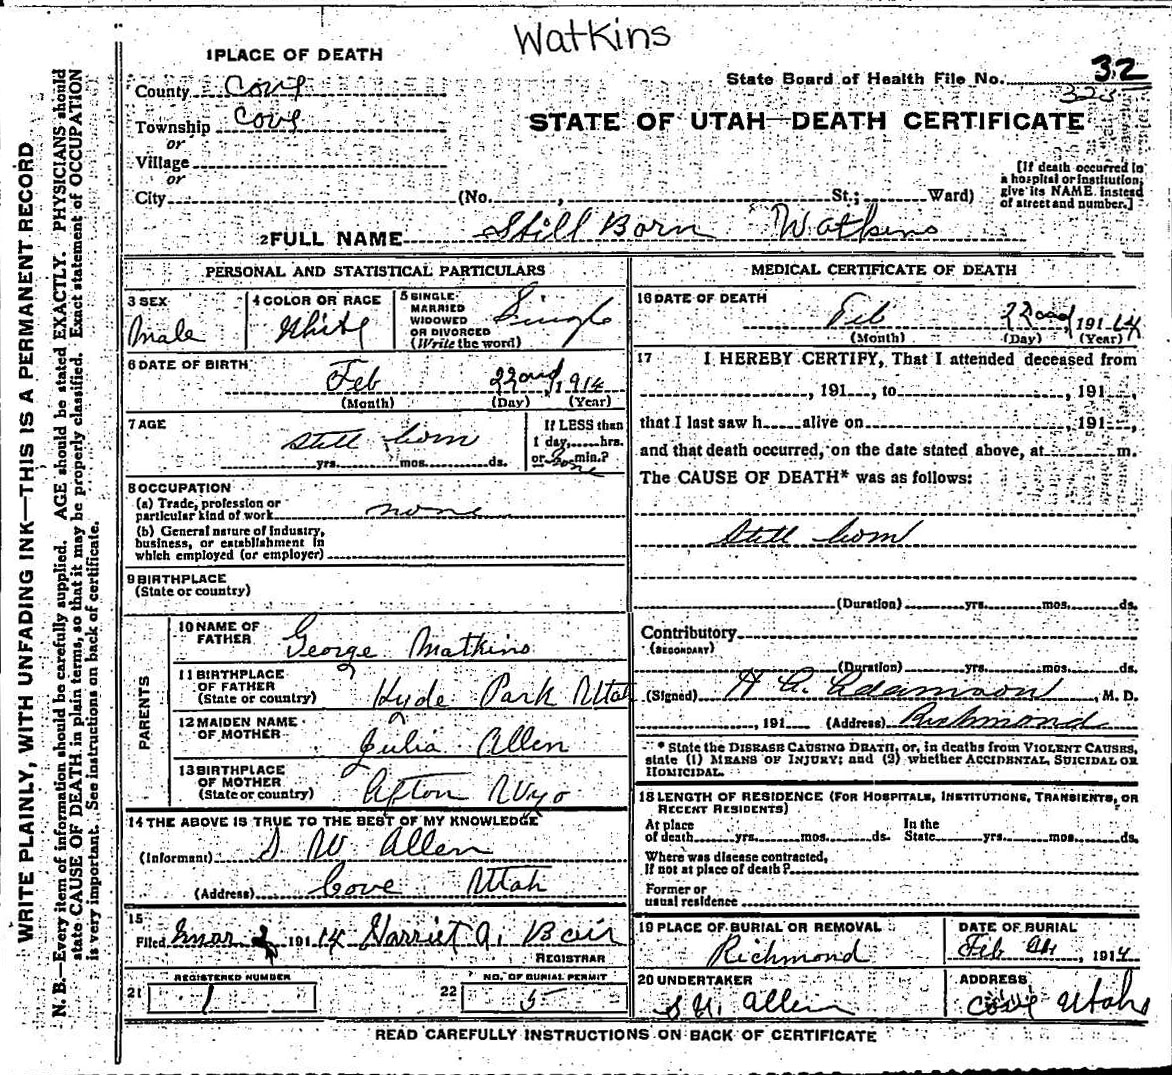 Watkins
1 PLACE OF DEATH
State Board of Health File No. 32
323
County Cove
Township Cove
STATE OF UTAH—DEATH CERTIFICATE
or
Village
or
City (No. , St.; Ward)
[If death occurred in a hospital or institution, give its NAME instead of street and number.]
2 FULL NAME Still Born Watkins
PERSONAL AND STATISTICAL PARTICULARS
3 SEX
Male
4 COLOR OR RACE
White
5 SINGLE
MARRIED
WIDOWED
OR DIVORCED
(Write the word)
Single
6 DATE OF BIRTH
Feb 22ond, 1914
(Month) (Day) (Year)
7 AGE
still born
yrs. mos. ds.
If LESS than
1 day, hrs.
or min.?
8 OCCUPATION
(a) Trade, profession or
particular kind of work none
(b) General nature of industry,
business, or establishment in
which employed (or employer)
9 BIRTHPLACE
(State or country)
PARENTS
10 NAME OF
FATHER
George Watkins
11 BIRTHPLACE
OF FATHER
(State or country)
Hyde Park Utah
12 MAIDEN NAME
OF MOTHER
Julia Allen
13 BIRTHPLACE
OF MOTHER
(State or country)
Afton Wyo
14 THE ABOVE IS TRUE TO THE BEST OF MY KNOWLEDGE
(Informant) S W Allen
(Address) Cove Utah
15
Filed Mar 2, 1914 Harriet A. Bair
REGISTRAR
REGISTERED NUMBER
21 1
NO. OF BURIAL PERMIT
22 5
MEDICAL CERTIFICATE OF DEATH
16 DATE OF DEATH
Feb 22ond, 1914
(Month) (Day) (Year)
17 I HEREBY CERTIFY, That I attended deceased from
, 191 , to , 191 ,
that I last saw h alive on , 191 ,
and that death occurred, on the date stated above, at m.
The CAUSE OF DEATH* was as follows:
Still born
(Duration) yrs. mos. ds.
Contributory
(SECONDARY)
(Duration) yrs. mos. ds.
(Signed) H A. Adamson, M. D.
, 191 (Address) Richmond
* State the DISEASE CAUSING DEATH, or, in deaths from VIOLENT CAUSES,
state (1) MEANS OF INJURY; and (2) whether ACCIDENTAL, SUICIDAL OR
HOMICIDAL.
18 LENGTH OF RESIDENCE (FOR HOSPITALS, INSTITUTIONS, TRANSIENTS, OR
RECENT RESIDENTS)
At place In the
of death yrs. mos. ds. State yrs. mos. ds.
Where was disease contracted,
If not at place of death?
Former or
usual residence
19 PLACE OF BURIAL OR REMOVAL
Richmond
DATE OF BURIAL
Feb , 1914
20 UNDERTAKER
S W. Allen
ADDRESS
Cove Utah
READ CAREFULLY INSTRUCTIONS ON BACK OF CERTIFICATE
WRITE PLAINLY, WITH UNFADING INK—THIS IS A PERMANENT RECORD
N. B.—Every item of information should be carefully supplied. AGE should be stated EXACTLY. PHYSICIANS should
state CAUSE OF DEATH in plain terms, so that it may be properly classified. Exact statement of OCCUPATION
is very important. See instructions on back of certificate.